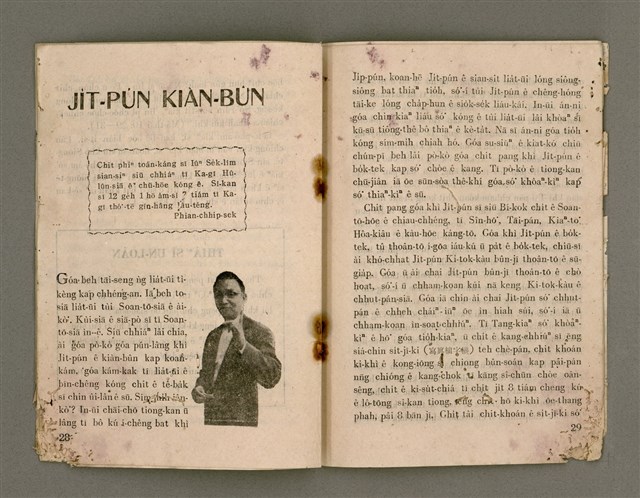 JI̍T-PÚN KIÀN-BÛN
Chit phiⁿ toán-káng sī Iûⁿ Se̍k-lîm
sian-siⁿ siū chhiáⁿ tī Ka-gī Hū-
lūn-siā ê chū-hōe kóng ê. Sî-kan
sī 12 ge̍h 1 hō àm-sî 7 tiám tī Ka-
gī thó͘-tē gîn-hâng lâu-téng.
Phian-chhip-sek
Góa-beh tāi-seng ǹg lia̍t-ūi tī-
kèng kap chhéng-an. Iā beh to-
siā lia̍t-ūi tùi Soan-tō-siā ê ài-
kò͘. Kúi-siā ê siā-pò sī tī Soan-
tō-siā ìn--ê. Siū chhiáⁿ lâi chia,
ài góa pò-kò góa pún-lâng khì
Ji̍t-pún ê kiàn-bûn kap koan-
kám, góa kám-kak tī lia̍t-ūi ê
bīn-chêng kóng chit ê tê-ba̍k
sī chin ûi-lân ê sū. Sím-mi̍h iân-
kò͘? In-ūi chāi-chō tiong-kan ū
lâng tī bô kú í-chêng bat khì
28
Ji̍p-pún, koan-hē Ji̍t-pún ê sian-sit lia̍t-ūi lóng siông-
siông bat thiaⁿ tio̍h, só͘-í tùi Ji̍t-pún ê chêng-hóng
tāi-ke lóng cha̍p-hun ê sio̍k-se̍k liáu-kái. In-ūi án-ni
góa chin-kiaⁿ liáu só͘ kóng ê tùi lia̍t-ūi lâi khòaⁿ sī
kū-sū tiong-thê bô thiaⁿ ê kè-ta̍t. Nā sī án-ni góa tio̍h
kóng sím-mi̍h chiah hó. Góa su-siúⁿ ê kiat-kò chiū
chún-pī beh lâi pò-kò góa chit pang khì Ji̍t-pún ê
bo̍k-tek kap só͘ chòe ê kang. Tī pò-kò ê tiong-kan
chū-jiân iā ōe sūn-sòa thê-khí góa só͘ khòaⁿ-kìⁿ kap
só͘ thiaⁿ-kìⁿ ê sū.
Chit pang góa khì Ji̍t-pún sī siū Bí-kok chit ê Soan-
tō-hōe ê chiau-chhéng, tī Sin-hō͘, Tāi-pán, Kiaⁿ-to͘
Hôa-kiâu ê kàu-hōe káng-tō. Góa khì Ji̍t-pún ê bo̍k-
tek, tû thoân-tō í-gōa iáu-kú ū pa̍t ê bo̍k-tek, chiū-sī
ài khó-chhat Ji̍t-pún Ki-tok-kàu bûn-jī thoân-tō ê sū-
gia̍p. Góa ū ài chai Ji̍t-pún bûn-jī thoân-tō ê chō
hoat, só͘-í ū chham-koan kúi nā keng Ki-tok-kàu ê
chhut-pán-siā. Góa iā chin ài chai Ji̍t-pún só͘ chhut-
pán ê chheh cháiⁿ-iūⁿ ōe ìn hiah súi, só͘-í iā ū
chham-koan ìn-soat-chhiúⁿ. Tī Tang-kiaⁿ só͘ khòaⁿ-
kìⁿ ê hō͘ góa tio̍h-kiaⁿ, ū chit ê kang-chhiúⁿ sī eng
siá-chin sit-jī-ki teh chè-pán, chit khoán
ki-khì ê kong-iōng sī chiong bûn-soán kap pâi-pán
nn̄g chióng ê kang-chok ū kāng sî-chūn chòe oân-
sêng, chit ê ki-sut-chiá tī chit ji̍t 8 tiám cheng kú
ê lô-tōng sî-kan tiong, ēng chit hō ki-khì ōe-thang
phah, pâi 8 bān jī. Chit tâi chit-khoán ê sit-jī-ki só͘
29